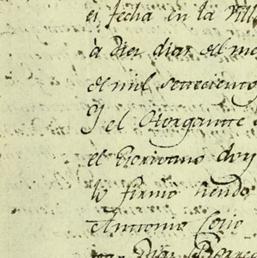 fecha en la Vill
à diez dias del me
de mil setteciento
Y el Otorgante
el Escrivano doy
lo firmò siendo
Antonio